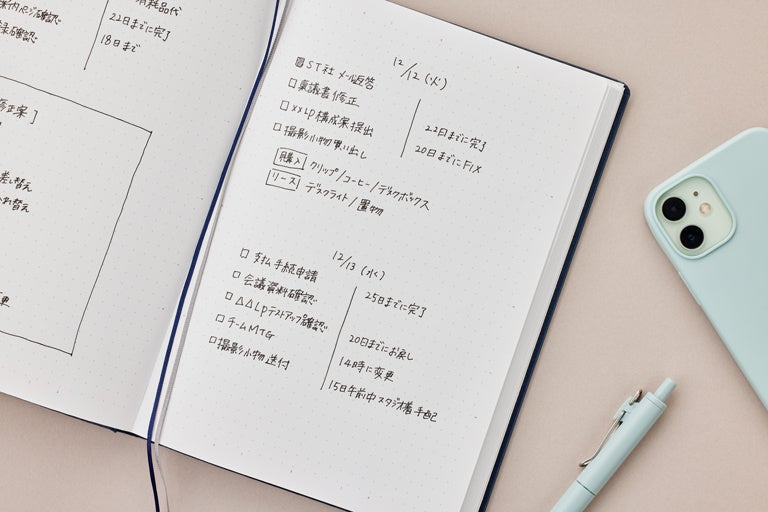 消耗品代
22日までに完了
18日まで
修正案]
差し替え
12/12 (火)
ST社 メール返答
□稟議書修正
□××LP構成案提出
22日までに完了
□撮影小物買い出し
20日までにFIX
購入 クリップ/コーヒー/デスクボックス
リース デスクライト/置物
12/13 (水)
□支払手続申請
25日までに完了
□会議資料確認
□△△LPテストアップ確認
20日までにお戻し
□チームMTG
14時に変更
□撮影小物送付
15日午前中スタジオ着手配